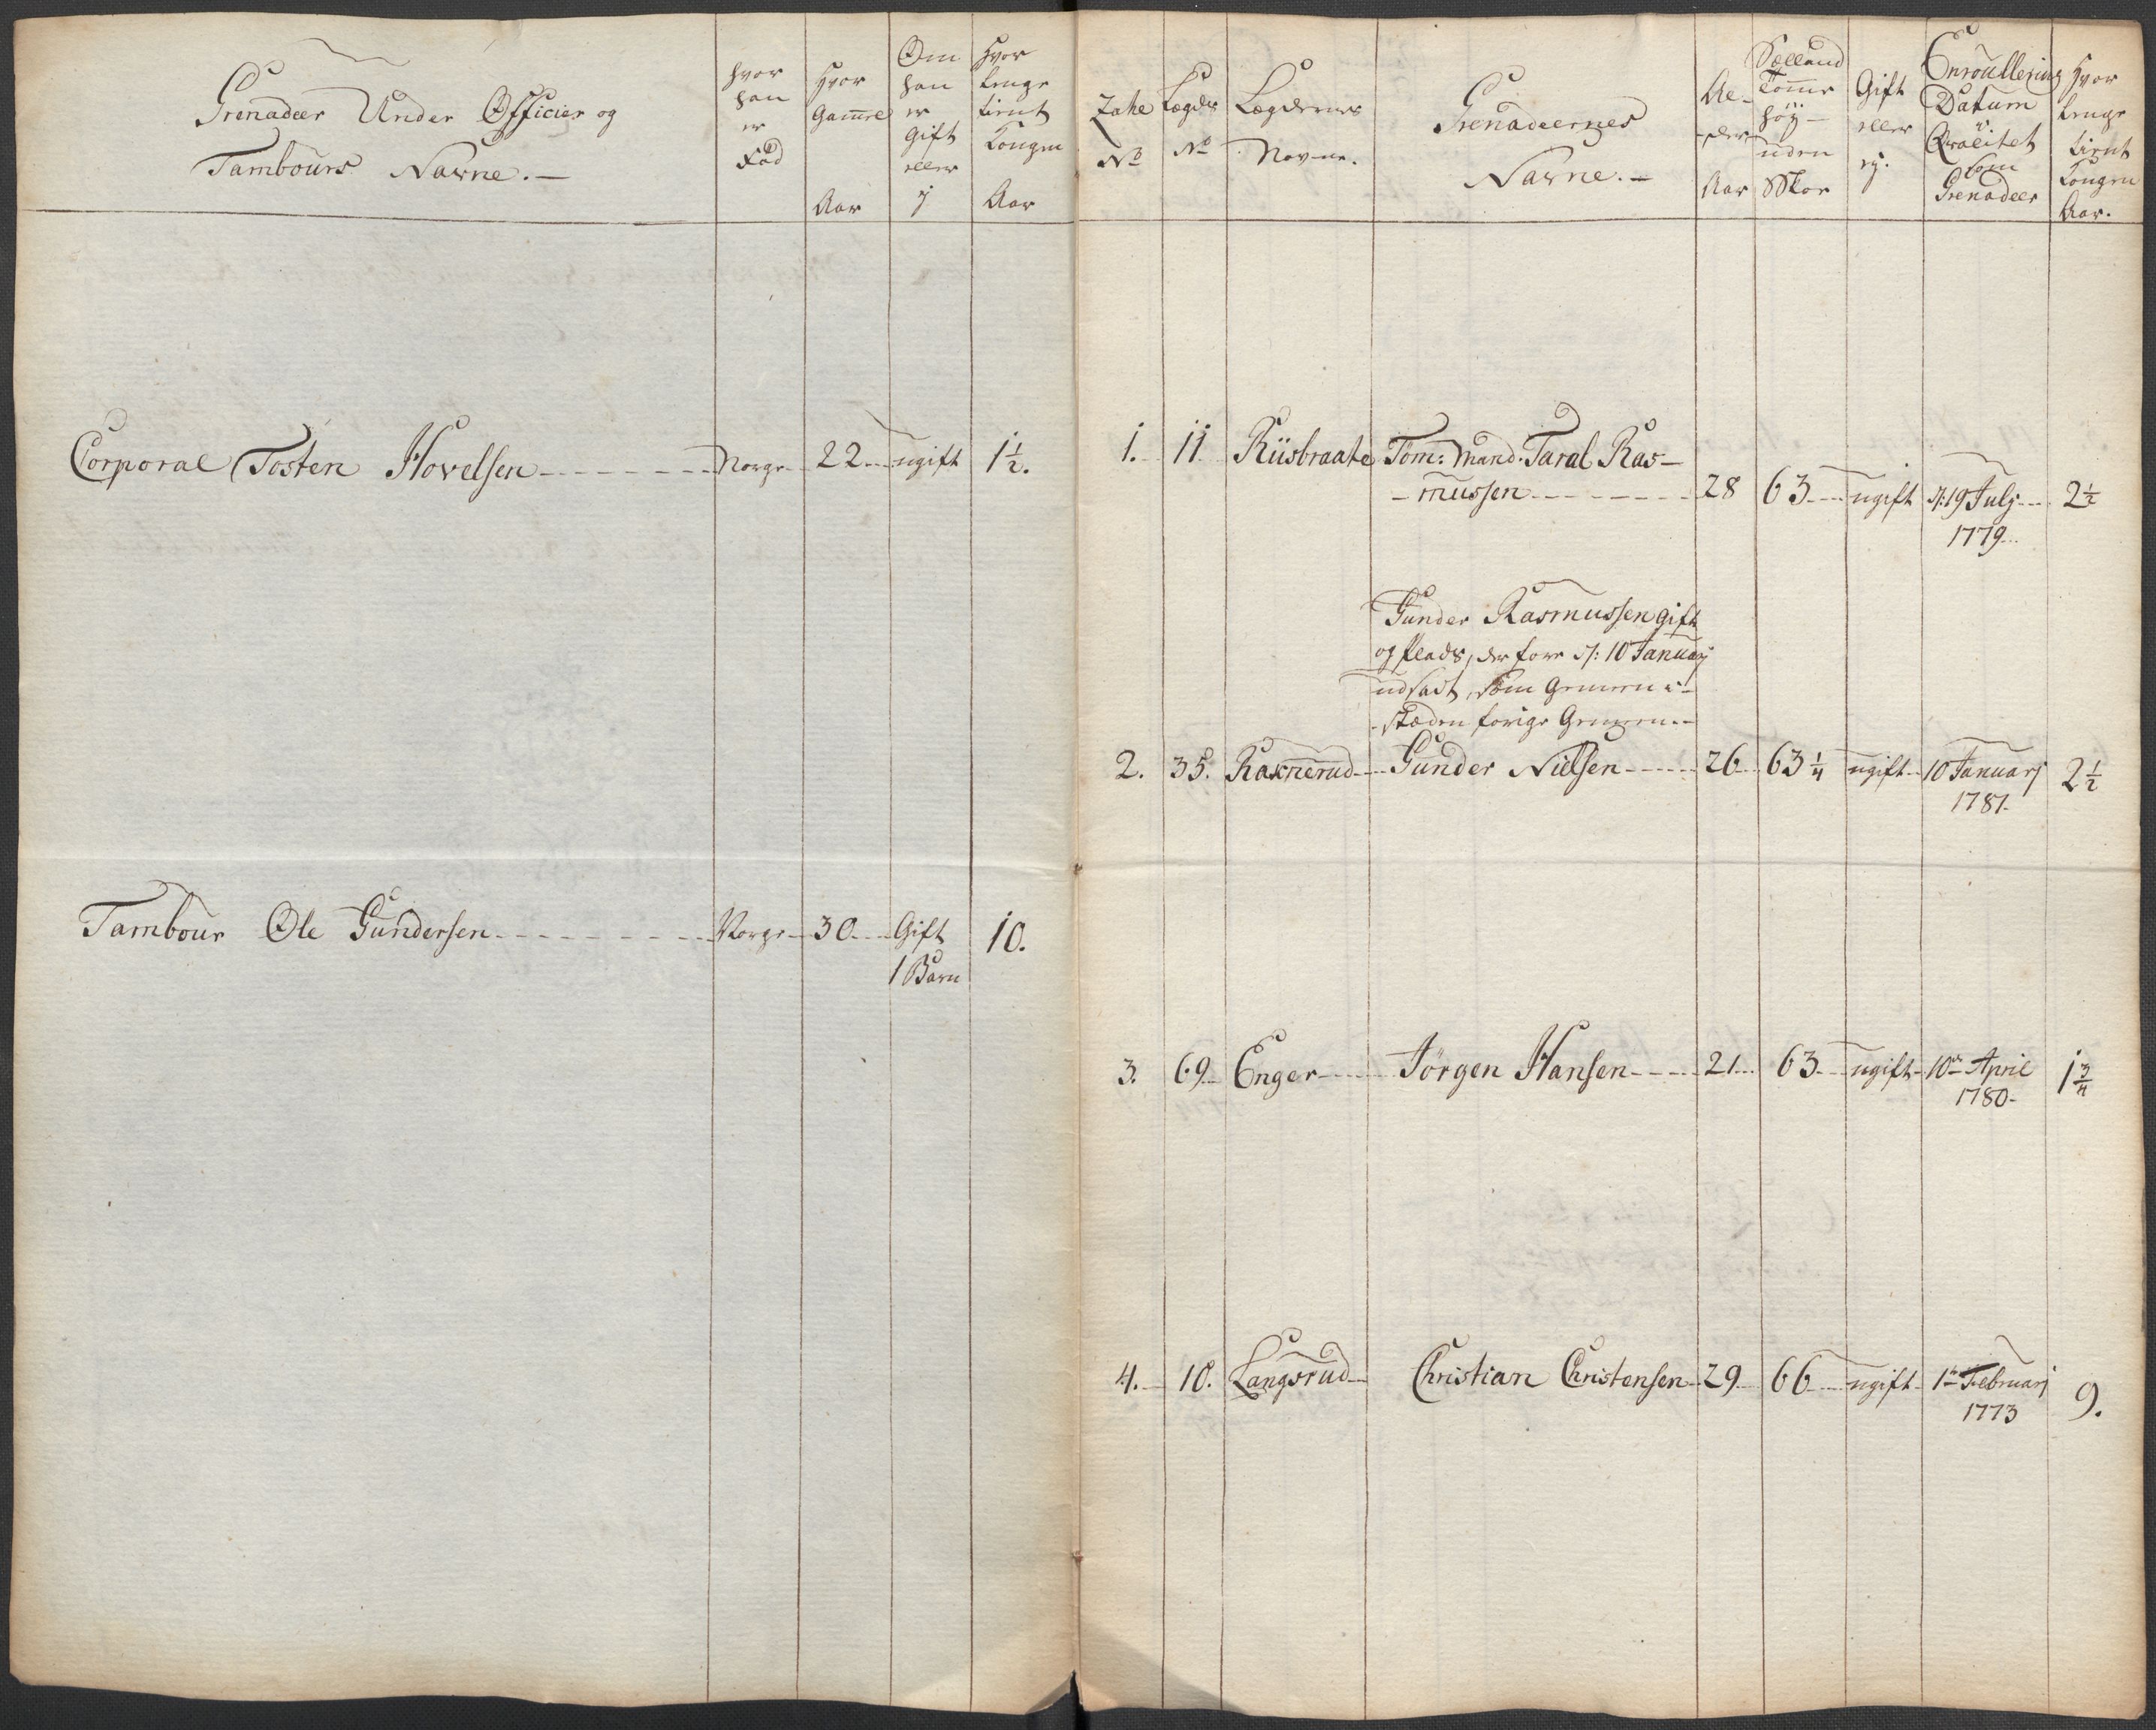 Grenadeer Under Officier og
Tambours Navne.—
hvor
han
er
Fød
Hvor
Gammel
Aar
Om
han
er
Gift
eller
ej
Hvor
lenge
tient
Kongen
Aar
Corporal Tosten Hovelsen Norge 22 ugift 1½.
Tambour Ole Gundersen Norge 30 Gift 10.
1 Barn
No
Lægds
No
Lægdernes
Navne.
Grenadeernes
Navne.—
Al-
-der
Aar
Sælland
Tomme
høÿ
uden
Skoe
Gift
eller
ej.
Enroullerings
Datum
Qvalitet
som
Grenadeer
Hvor
lenge
tient
Kongen
Aar.
1. 11 Riisbraate Tøm: Mand. Taral Ras-
-mussen 28 63 ugift d: 19 July 2½
1779
Gunder Rasmussen gift
og Plads, der fore d: 10 Januarj
udsadt, som Gemeen i
stæden forige Gemeen
2. 35. Raknerud Gunder Nielsen 26 63¼ ugift 10 Januarj 2½
1781.
3. 69 Enger Jörgen Hansen 21 63 ugift 10de April 1¾
1780
4. 10. Langsrud Christian Christensen 29 66 ugift 1te Februarj 9.
1773